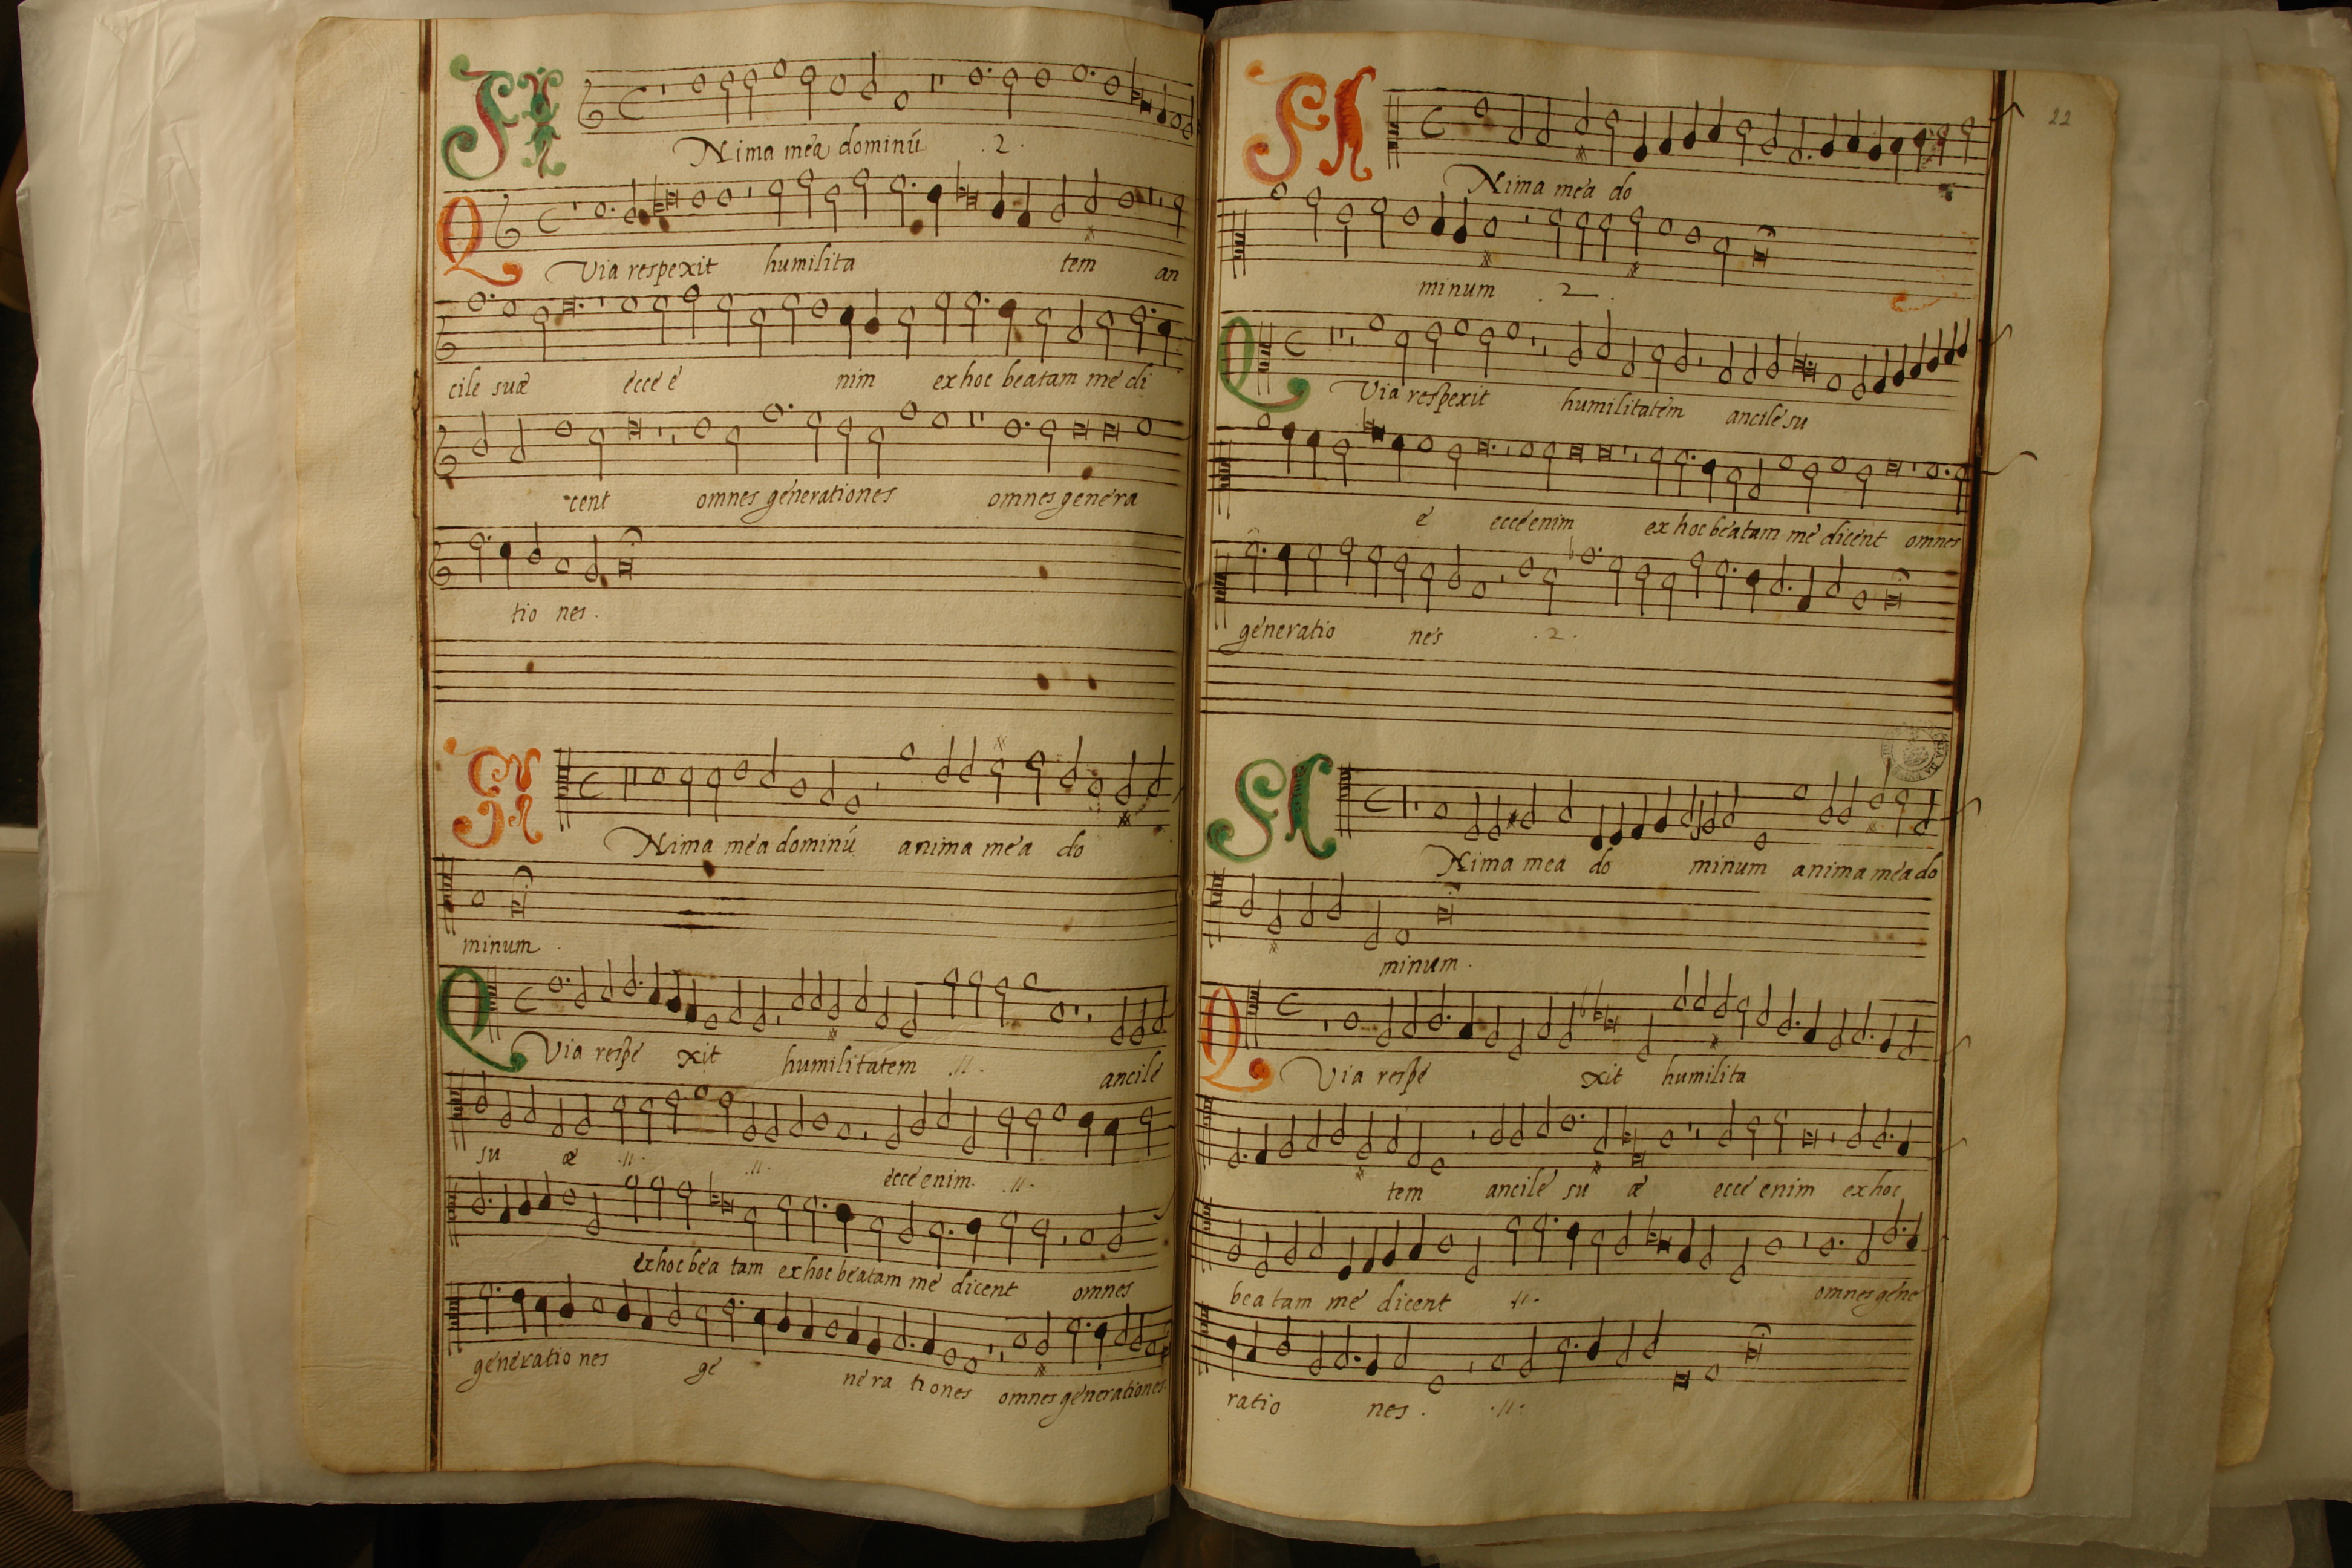 ANima mea dominú .2.
QVia respexit humilita tem an
cile suæ ecce e nim ex hoc beatam me di
cent omnes generationes omnes genera
tio nes.
ANima mea dominú anima mea do
minum.
QVia respe xit humilitatem .//. ancile
su æ .//. .//. ecce enim. .//.
ex hoc bea tam ex hoc beatam me dicent omnes
generatio nes ge nera tiones omnes generationes.
22
ANima mea do
minum .2.
QVia respexit humilitatem ancile su
e ecce enim ex hoc beatam me dicent omnes
generatio nes .2.
ANima mea do minum anima mea do
minum.
QVia respe xit humilita
tem ancile su æ ecce enim ex hoc
bea tam me dicent .//. omnes gene
ratio nes. .//.